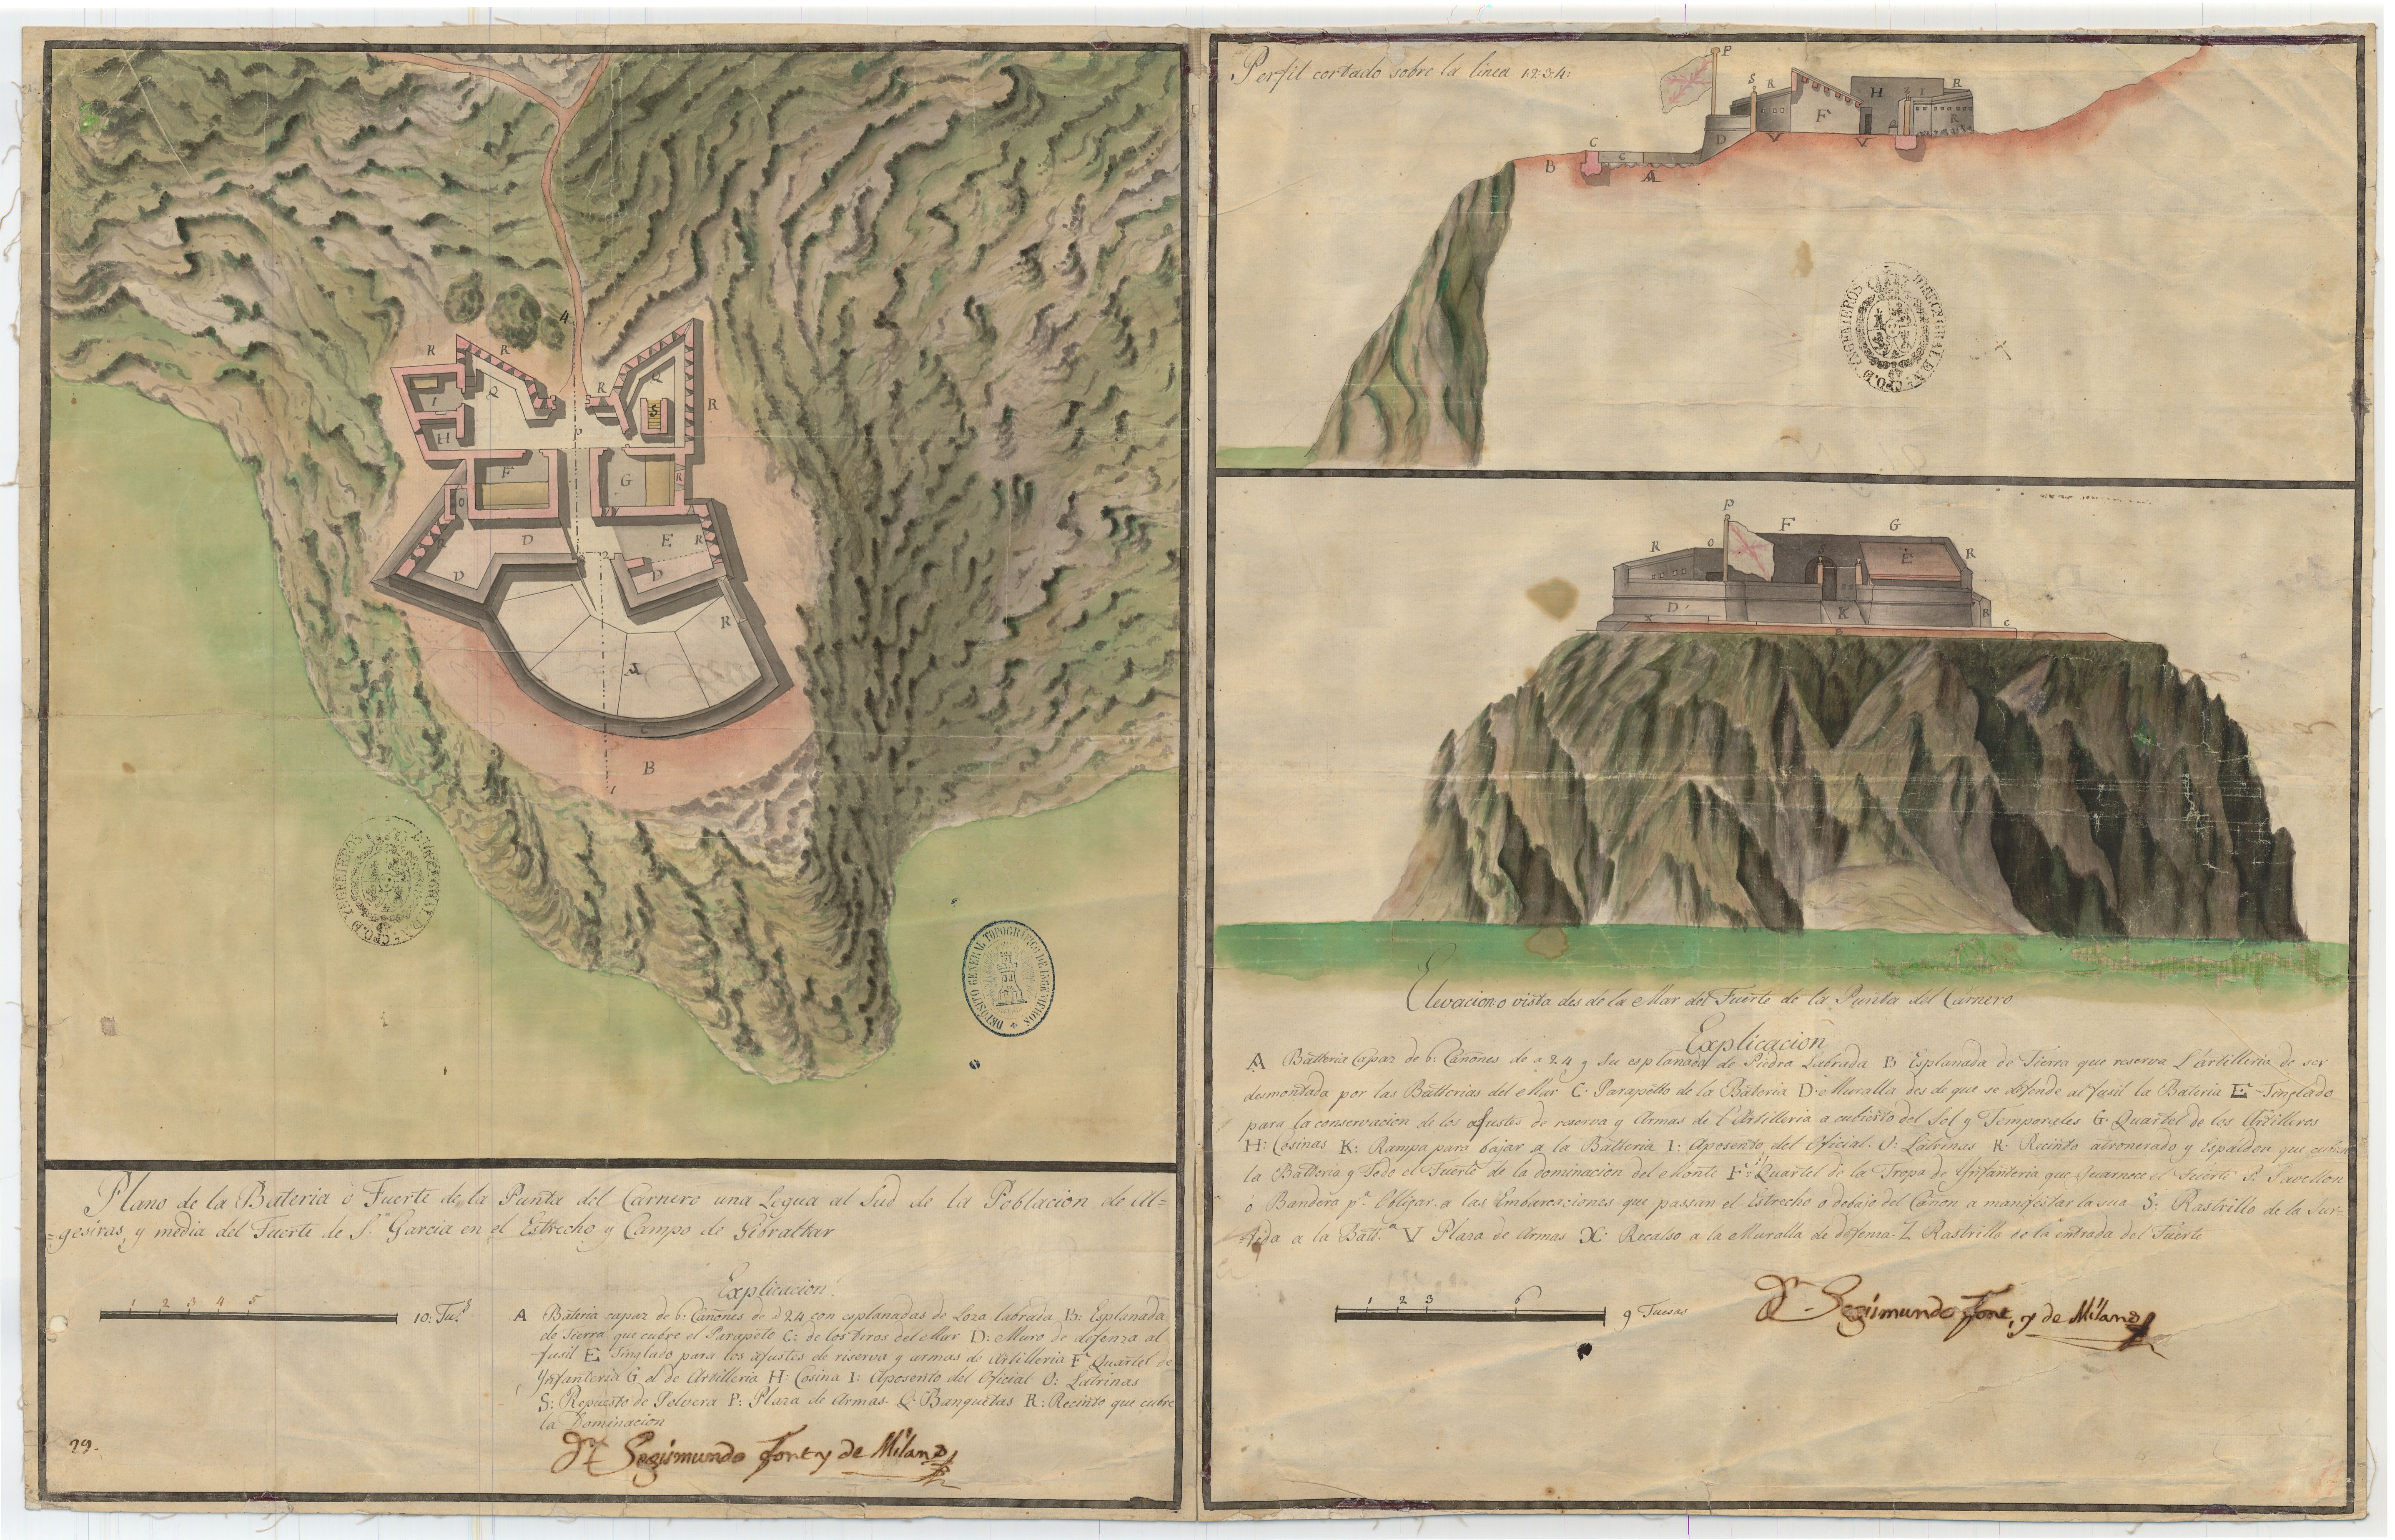 Plano de la Bateria ò Fuerte de la Punta del Carnero una Legua al Sud de la Poblacion de Al=
=gesiras, y media del Fuerte de S.n Garcia en el Estrecho y Campo de Gibraltar
1 2 3 4 5 10: Tu.s
Explicacion.
A Bateria capaz de 6: Cañones de à 24 con esplanadas de Loza labrada B: Esplanada
de Tierra que cubre el Parapeto C: de los tiros del Mar D: Muro de defenza al
fusil E Tinglado para los afustes de riserva y armas de Artilleria F Quartel de
Ynfanteria G el de Artilleria H: Cosina I: Aposento del Oficial O: Latrinas
S: Repuesto de Polvera P: Plaza de Armas Q: Banquetas R: Recinto que cubre
la Dominacion
Dn Segismundo Font y de Milans
29.
Perfil cortado sobre la linea 1:2:3:4:
Elevacion o vista des de la Mar del Fuerte de la Punta del Carnero
Explicacion
A Batteria Capaz de 6: Cañones de a 24 y su esplanada de Piedra Labrada B Esplanada de Tierra que reserva l'artilleria de ser
desmontada por las Batterias del Mar C: Parapetto de la Bateria D: Muralla des de que se defende al fusil la Bateria E Tinglado
para la conservacion de los afustes de reserva y Armas de l'Artilleria a cubierto del Sol y Temporeles G Quartel de los Artilleros
H: Cosinas K: Rampa para bajar a la Batteria I: Aposento del Oficial O: Latrinas R: Recinto atronerado y Espaldon que cubre
la Batteria y Todo el Fuerte de la dominacion del Monte F: Quartel de la Tropa de Ynfanteria que Guarnece el Fuerte P: Pavellon
ò Bandera p.a Obligar a las Embarcaciones que passan el Estrecho o debajo del Cañon a manifestar la sua S: Rastrillo de la Sur=
=tida a la Batt.a V Plaza de Armas X: Recalso a la Muralla de defensa Z Rastrillo de la entrada del Fuerte
1 2 3 6 9 Tuesas
Dn Segismundo Font, y de Milans
DEPOSITO GENERAL TOPOGRAFICO DE INGENIEROS